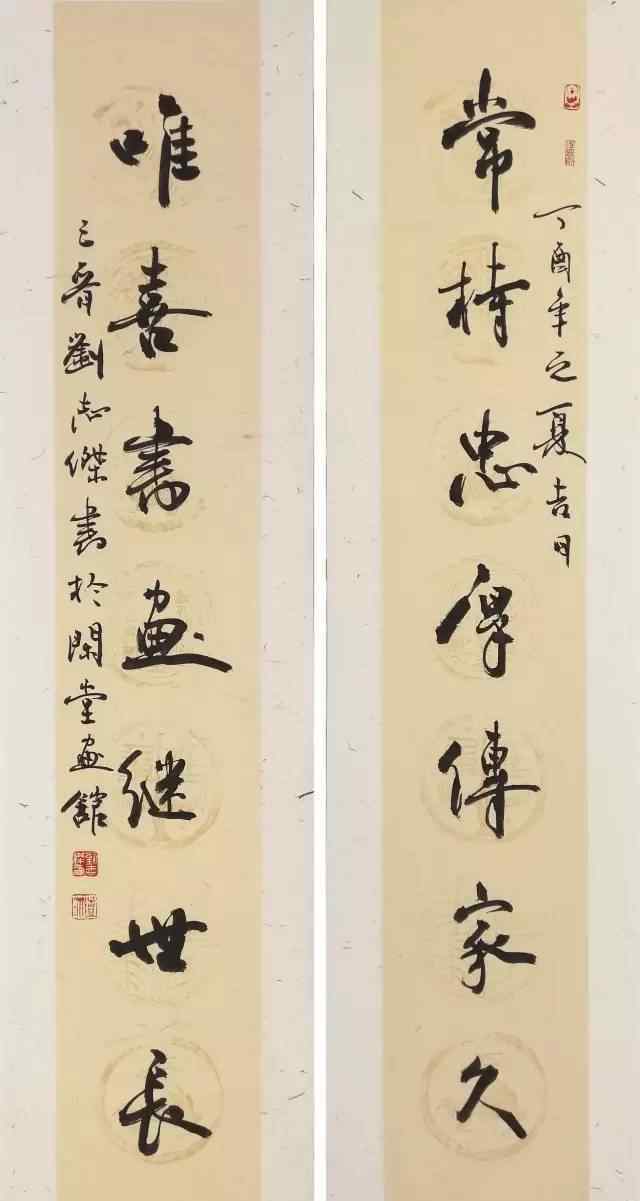 丁酉年之夏吉日
常持忠厚傳家久
唯喜書畫继世長
三晉劉志傑書於閑堂畫館